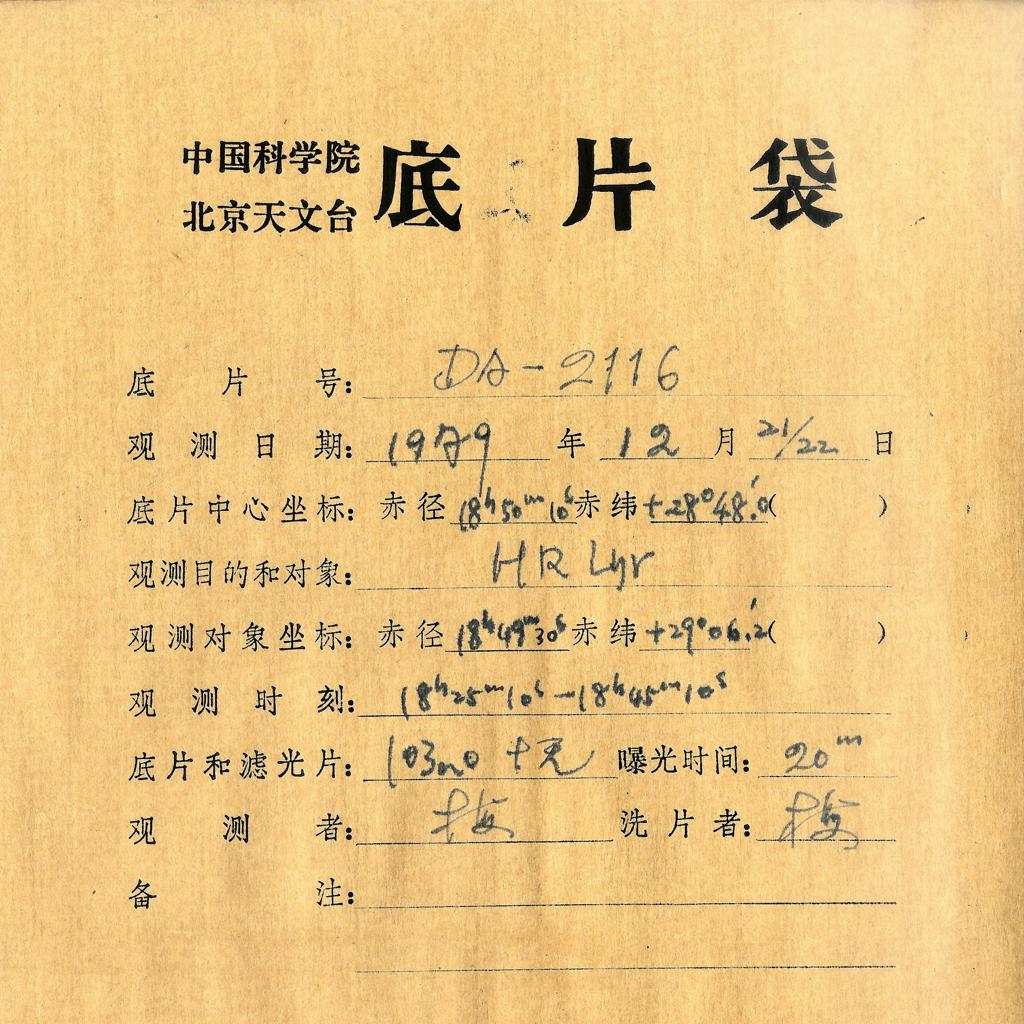 中国科学院
北京天文台
底片袋
底片号: DA-2116
观测日期: 1979年12月21/22日
底片中心坐标: 赤径18h50m10s赤纬+28°48.'0( )
观测目的和对象: HR Lyr
观测对象坐标: 赤径18h49m30s赤纬+29°06.'2( )
观测时刻: 18h25m10s-18h45m10s
底片和滤光片: 103aO+无 曝光时间: 20m
观测者: 梅 洗片者: 梅
备注: